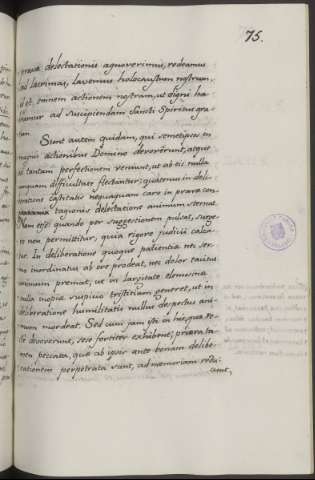 75.
prava delectationis agnoverimus, redeamus
ad lacrimas, lavemus holocaustum nostrum,
id est, omnem actionem nostram, ut digni ha
beamur ad suscipiendam Sancti Spiritus gra
tiam.
Sunt autem quidam, qui semetipsos in
magnis actionibus Domino devoverunt, atque
ad tantam perfectionem veniunt, ut ab eis nulla
unquam difficulter flectantur; quatenus in deli-
cate captitatis nequaquam caro in prava con
tagionis delectatione animum sternat.
Non etsi quando per suggestionem pulsat, surge
re non permittitur, quia rigore judicii calca
tur. In deliberatione quoque patientia nec ser
mo inordinatus ab ore prodeat, nec dolor tacitus
animum premat, ut in largitate elemosina
nulla inopia supius tristitiam generet, ut in
deliberatione humilitatis nullus despectus ani
mum mordeat. Sed cum jam isti in his, qua re
devoverunt, sese fortiter exhibent; priora ta
men peccata, qua ab ipsis ante bonam delibe-
rationem perpetrata sunt, ad memoriam redu
cunt,